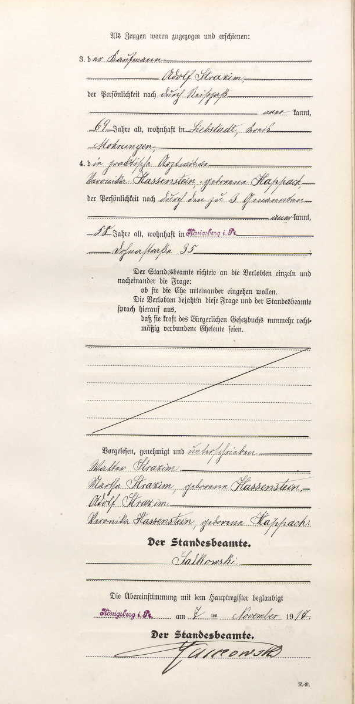 Als Zeugen waren zugezogen und erschienen:
3. der Kaufmann
Adolf Kraxim,
der Persönlichkeit nach durch Reisepaß
aner kannt,
69 Jahre alt, wohnhaft in Liebstadt, Kreis
Mohrungen,
4. die
Veronika Hassenstein, geborene Kappach
der Persönlichkeit nach durch den zu 3 Genannten
aner kannt,
58 Jahre alt, wohnhaft in Königsberg i. Pr.
35
Der Standesbeamte richtete an die Verlobten einzeln und
nacheinander die Frage:
ob sie die Ehe miteinander eingehen wollen.
Die Verlobten bejahten diese Frage und der Standesbeamte
sprach hierauf aus,
daß sie kraft des Bürgerlichen Gesetzbuchs nunmehr recht-
mäßig verbundene Eheleute seien.
Vorgelesen, genehmigt und unterschrieben
Walter Kraxim
Martha Kraxim, geborene Hassenstein
Adolf Kraxim
Veronika Hassenstein, geborene Kappach.
Der Standesbeamte.
Salkowski
Die Übereinstimmung mit dem Hauptregister beglaubigt
Königsberg i. Pr. am 7 ten November 19
Der Standesbeamte.